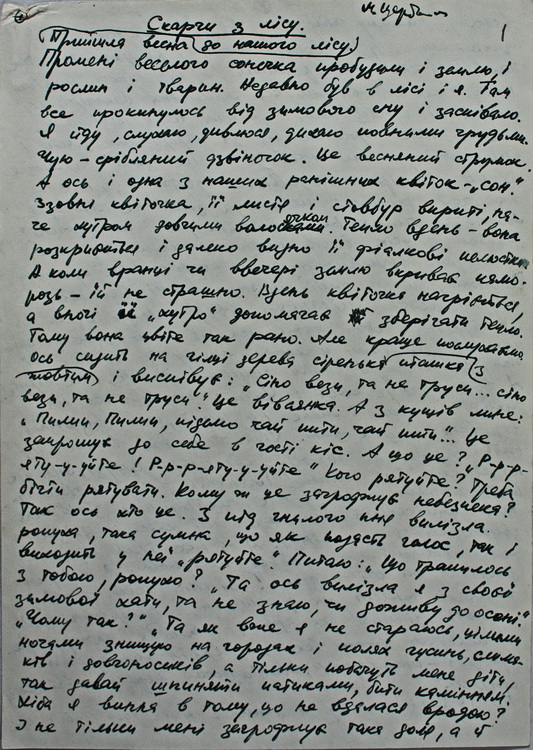 М. Щерб
1
Скарги з лісу.
Прийшла весна до нашого лісу.
Промені веселого сонечка пробудили і землю, і
рослин і тварин. Недавно був в лісі і я. Там
все прокинулось від зимового сну і заспівало.
Я йду, слухаю, дивлюся, дихаю повними грудьми.
Чую – срібляний дзвіночок. Це весняний струмок.
А ось і одна з наших ранішних квіток – „сон“.
Ззовні квіточка, її листя і стовбур вкриті, на-
че хутром довгими волосочками. Тепло вдень – вона
розкривається і далеко видно її фіалкові пелюстки
А коли вранці чи ввечері землю вкриває памо-
розь – їй не страшно. Вдень квіточка нагріється,
а вночі її „хутро“ допомагає зберігати тепло.
Тому вона цвіте так рано. Але краще послухаємо
ось сидить на гілці дерева сіренька пташка з
жовтим і виспівує: „Сіно вези, та не труси... сіно
вези, та не труси“. Це вівсянка. А з кущів лине:
„Пилип, Пилип, підемо чай пити, чай пити“... Це
запрошує до себе в гості кіс. А що це? „Р-р-р-
яту-у-уйте! Р-р-р-яту-у-уйте“ Кого рятуйте? Треба
бігти рятувати. Кому ж це загрожує небезпека?
Так ось хто це. З під гнилого пня вилізла
ропуха, така сумна, що як подасть голос, так і
виходить у неї „рятуйте“. Питаю: „Що трапилось
з тобою, ропухо?“ „Та ось вилізла я з своєї
зимової хати, та не знаю, чи доживу до осені.“
„Чому так?“ „Та як воно я не стараюсь, цілими
ночами знищую на городах і полях гусінь, слима-
ків і довгоносиків, а тільки побачуть мене діти,
так давай шпиняти патиками, бити камінням.
Хіба я винна в тому, що не вдалася вродою?
І не тільки мені загрожує така доля, а й